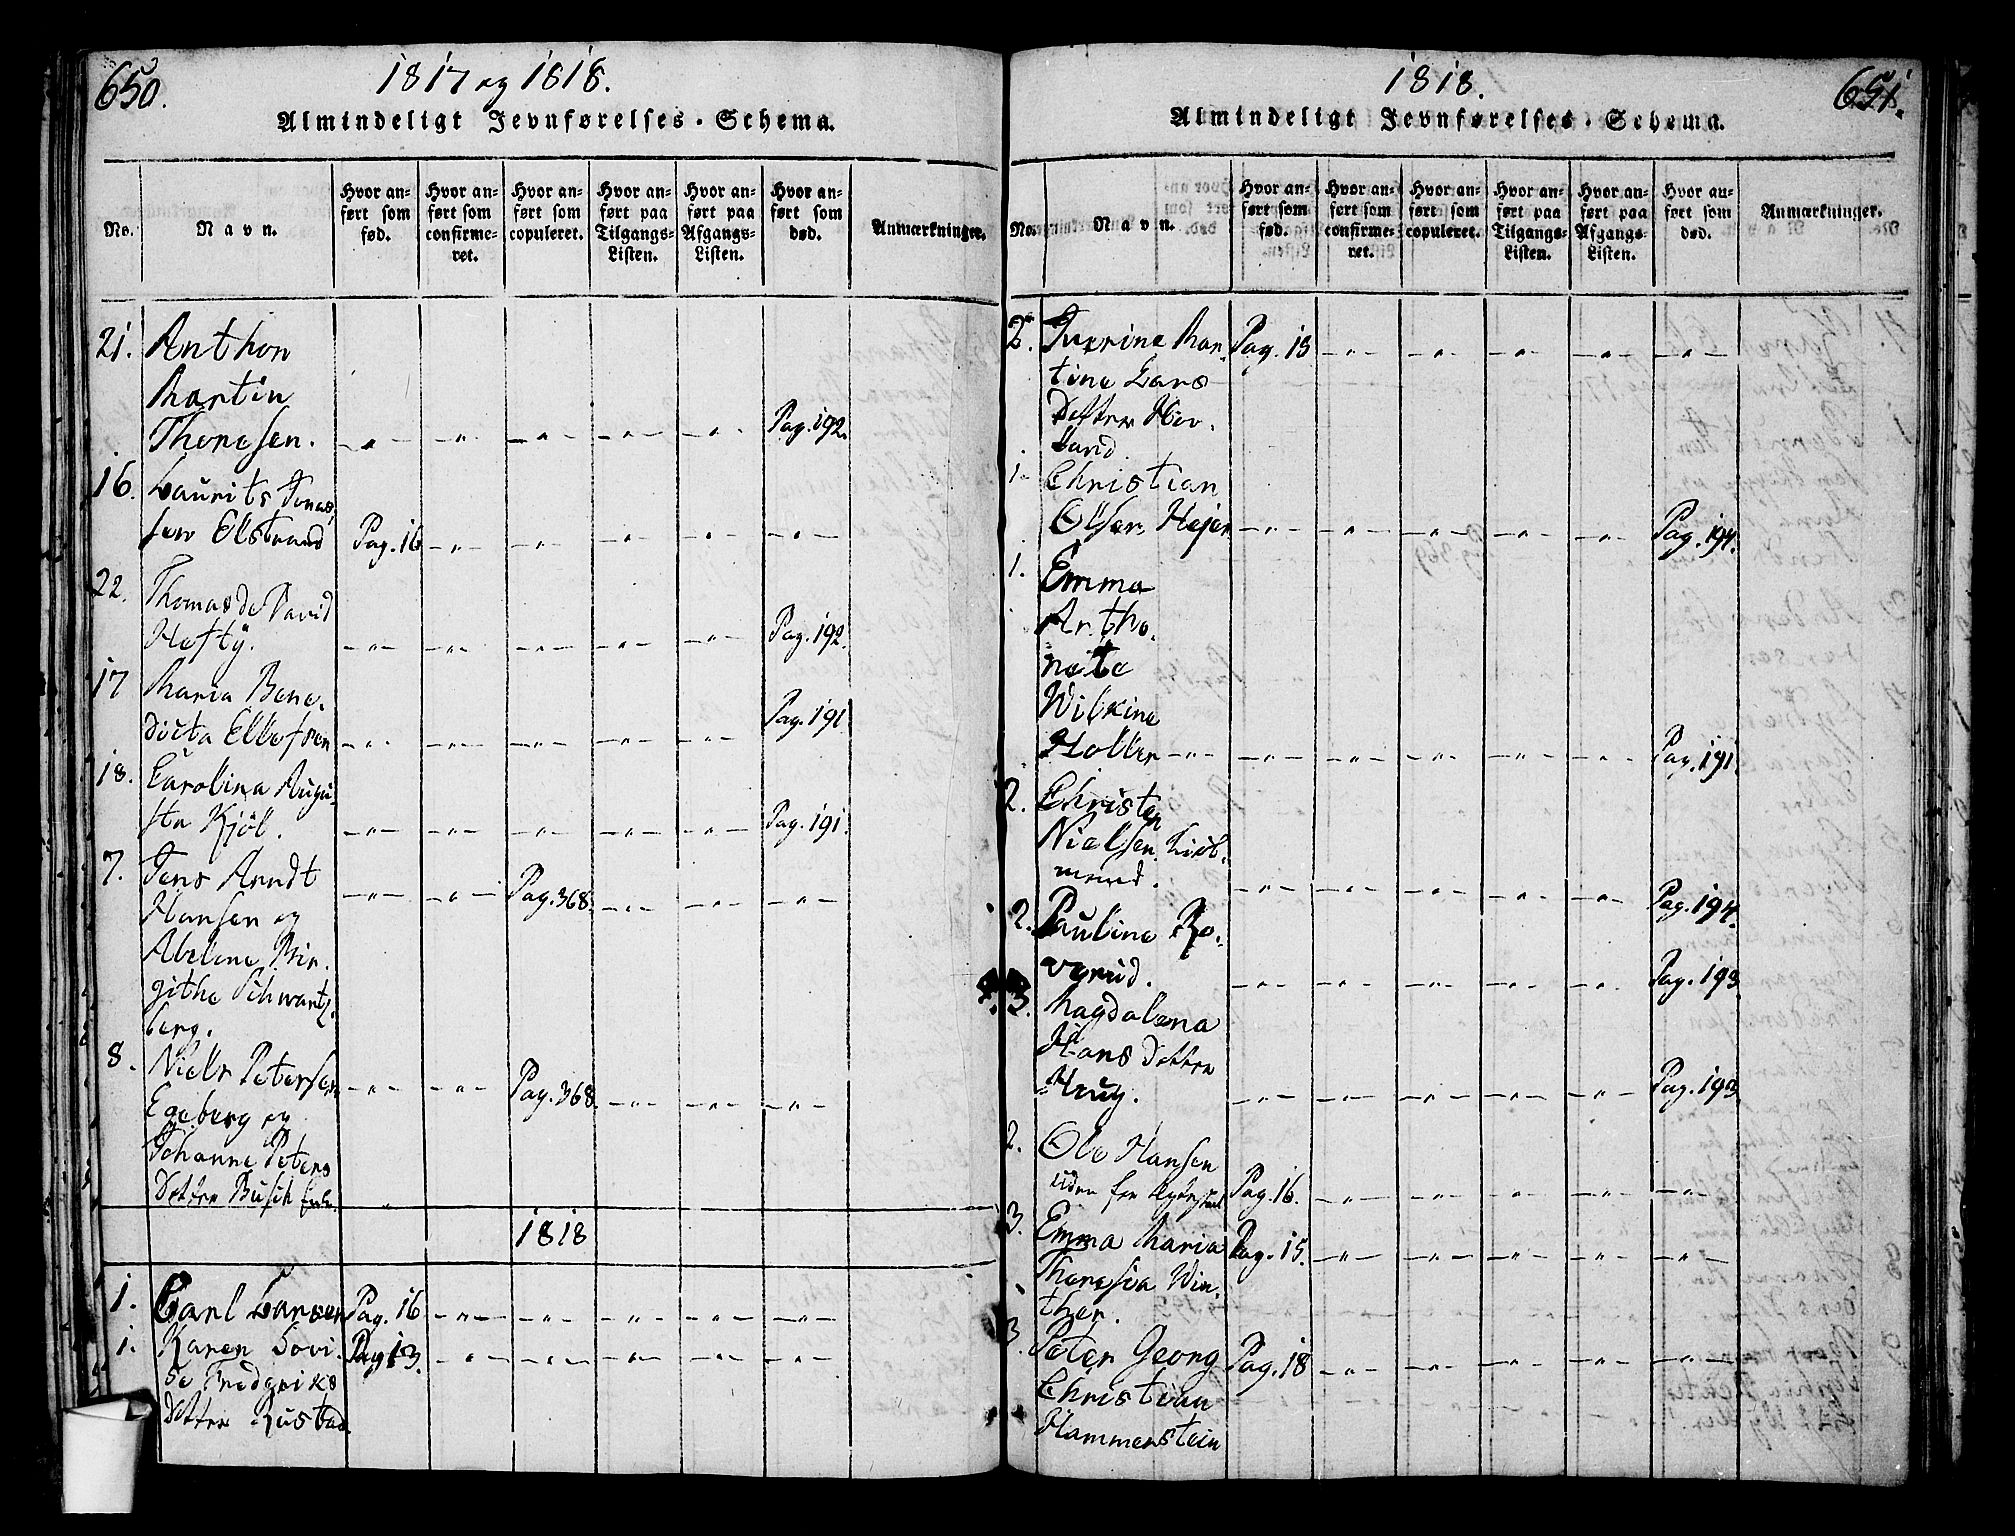 650.
1817 og 1818.
Almindeligt Jevnførelses-Schema.
No.
Navn.
Hvor anført som fød.
Hvor anført som confirmeret.
Hvor anført som copuleret.
Hvor anført paa Tilgangs-Listen.
Hvor anført paa Afgangs-Listen.
Hvor anført som død.
Anmærkninger.
21. Anthon
Martin
Thoresen. Pag. 192.
16. Laurits Jonas
sen Elstrand Pag. 16
22. Thomas de David
Hefty. Pag. 192.
17 Maria Bene-
dicta Ellefsen Pag. 191
18. Carolina Augu-
sta Kjöl. Pag. 191.
7. Jens Arndt
Hansen og Pag. 368.
Abelene Bir-
githe Schwartz-
berg.
8. Niels Petersen
Egeberg og Pag. 368.
Johanne Peters
Detter Busch
1818
1. Carl Larsen Pag. 16
1. Karen Lovi- Pag. 13.
se Fredriks
Detter Rustad.
1818.
651.
Almindeligt Jevnførelses-Schema.
No.
Navn.
Hvor anført som fød.
Hvor anført som confirmeret.
Hvor anført som copuleret.
Hvor anført paa Tilgangs-Listen.
Hvor anført paa Afgangs-Listen.
Hvor anført som død.
Anmærkninger.
2. Mar- Pag. 15
tine Lars
Detter Hov-
land.
1. Christian
Olsen Hejer Pag. 194.
1. Emma
Antho-
nete
Wilkine
Holler Pag. 191
2. Christen
Nielsen
mand. Pag. 194.
2. Pauline Ro-
vgrud. Pag. 193
3. Magdalena
Hans Detter
Haug. Pag. 193
2. Ole Hansen
uden for Pag. 16.
3. Emma Maria Pag. 15.
Theresia Win-
ther.
3. Peter Georg Pag. 18
Christian
Hammerstein